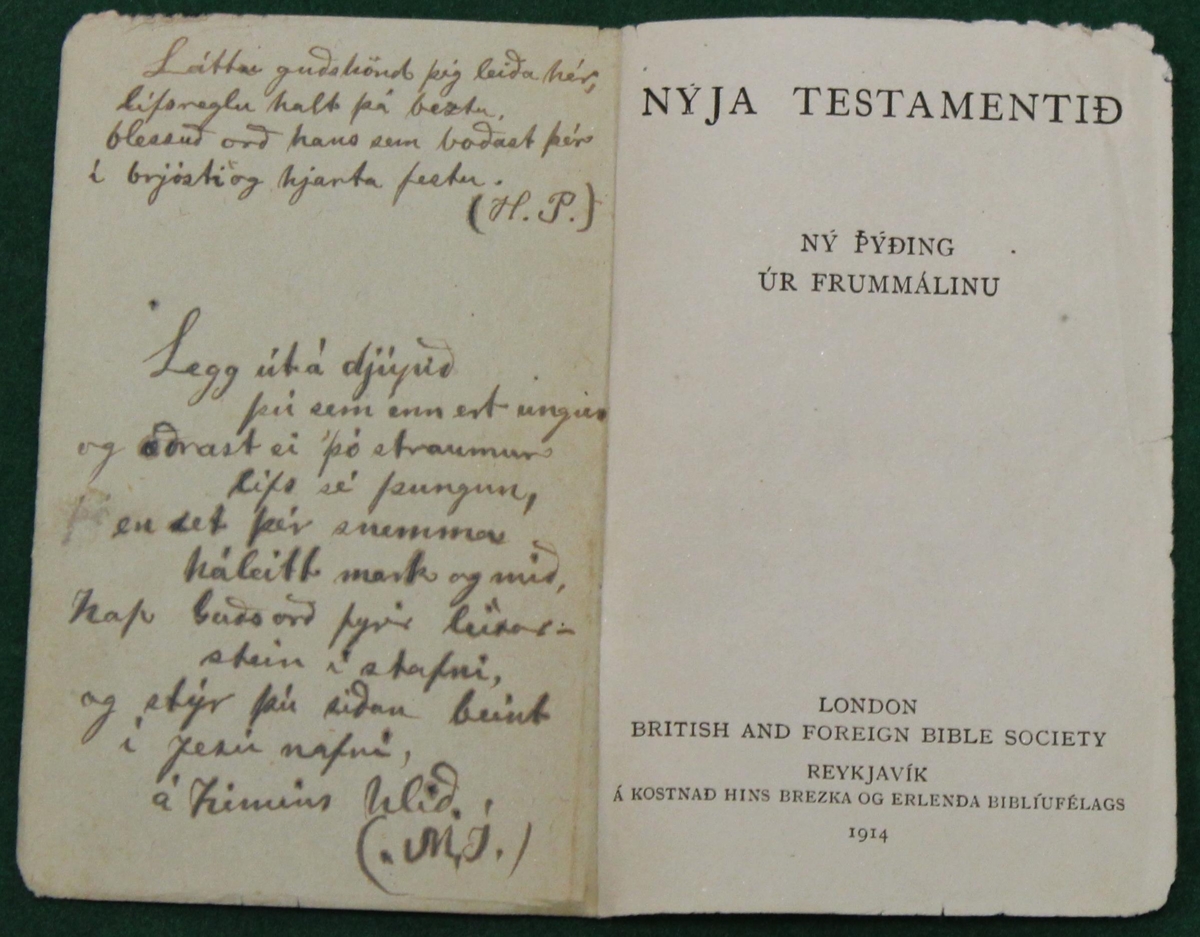 Láttu guðshönd þig leiða hér,
lífsreglu halt þá beztu,
blessuð orð hans sem boðast þér
í brjósti og hjarta festu.
(H. P.)
Legg út á djúpið
þú sem enn ert ungur
og æðrast ei þó straumur
lífs sé þungur,
en set þér snemma
háleitt mark og mið,
haf Guðsorð fyrir leiðar-
stein í stafni,
og stýr þú síðan beint
í Jesú nafni,
á himins hlið.
(M. J.)
NÝJA TESTAMENTIÐ
NÝ ÞÝÐING
ÚR FRUMMÁLINU
LONDON
BRITISH AND FOREIGN BIBLE SOCIETY
REYKJAVÍK
Á KOSTNAÐ HINS BREZKA OG ERLENDA BIBLÍUFÉLAGS
1914